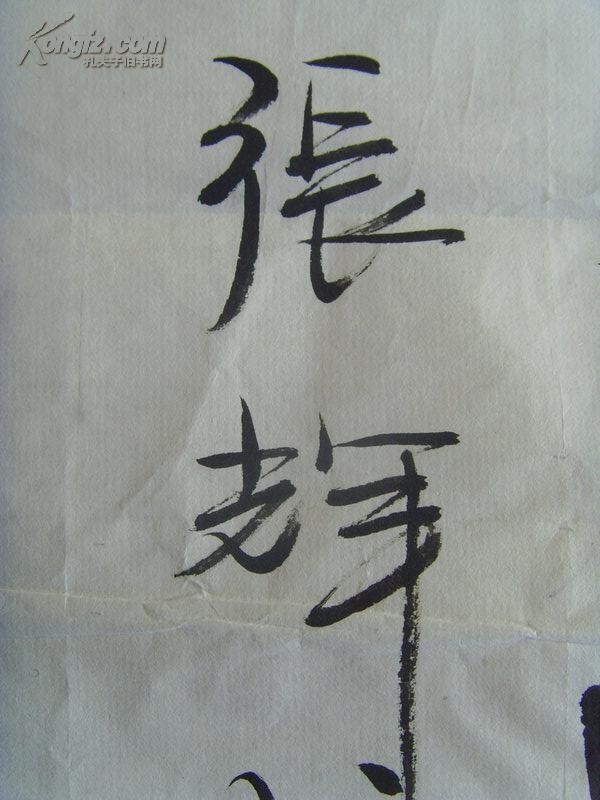 Kongfz.com
孔夫子旧书网
張
輝